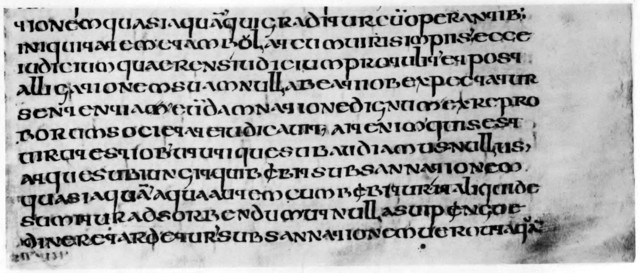 tionem quasi aquā qui graditur cū operantib;
iniquitatem et ambolat cum uiris impiis ecce
iudicium quaerens iudicium protulit et post
alligationem suam nulla beati iob expectatur
sententia eū damnatione dignum ex repro
borum societate iudicauit; ait enim quis est
uir ut est iob ut utique subaudiamus nullus,
atque subiungit qui bibit subsannationem
quasi aquā aqua autem cum bibitur aliquide
sumitur adsorbendum ut nulla sui pengue
dine retardetur subsannationem uero ut aquā